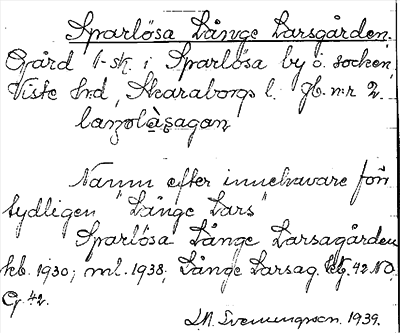 Sparlösa Långe Larsgården.
Gård 1 sk. i Sparlösa by o. socken,
Viste hrd, Skaraborgs l. Jb. nr 2.
laŋolàsagan
Namn efter innehavare för
tydligen "Långe Lars"
Sparlösa Långe Larsagården
kb. 1930; ml. 1938; Långe Larsag. 42 NO.
G 42.
Svenungsson. 1939.